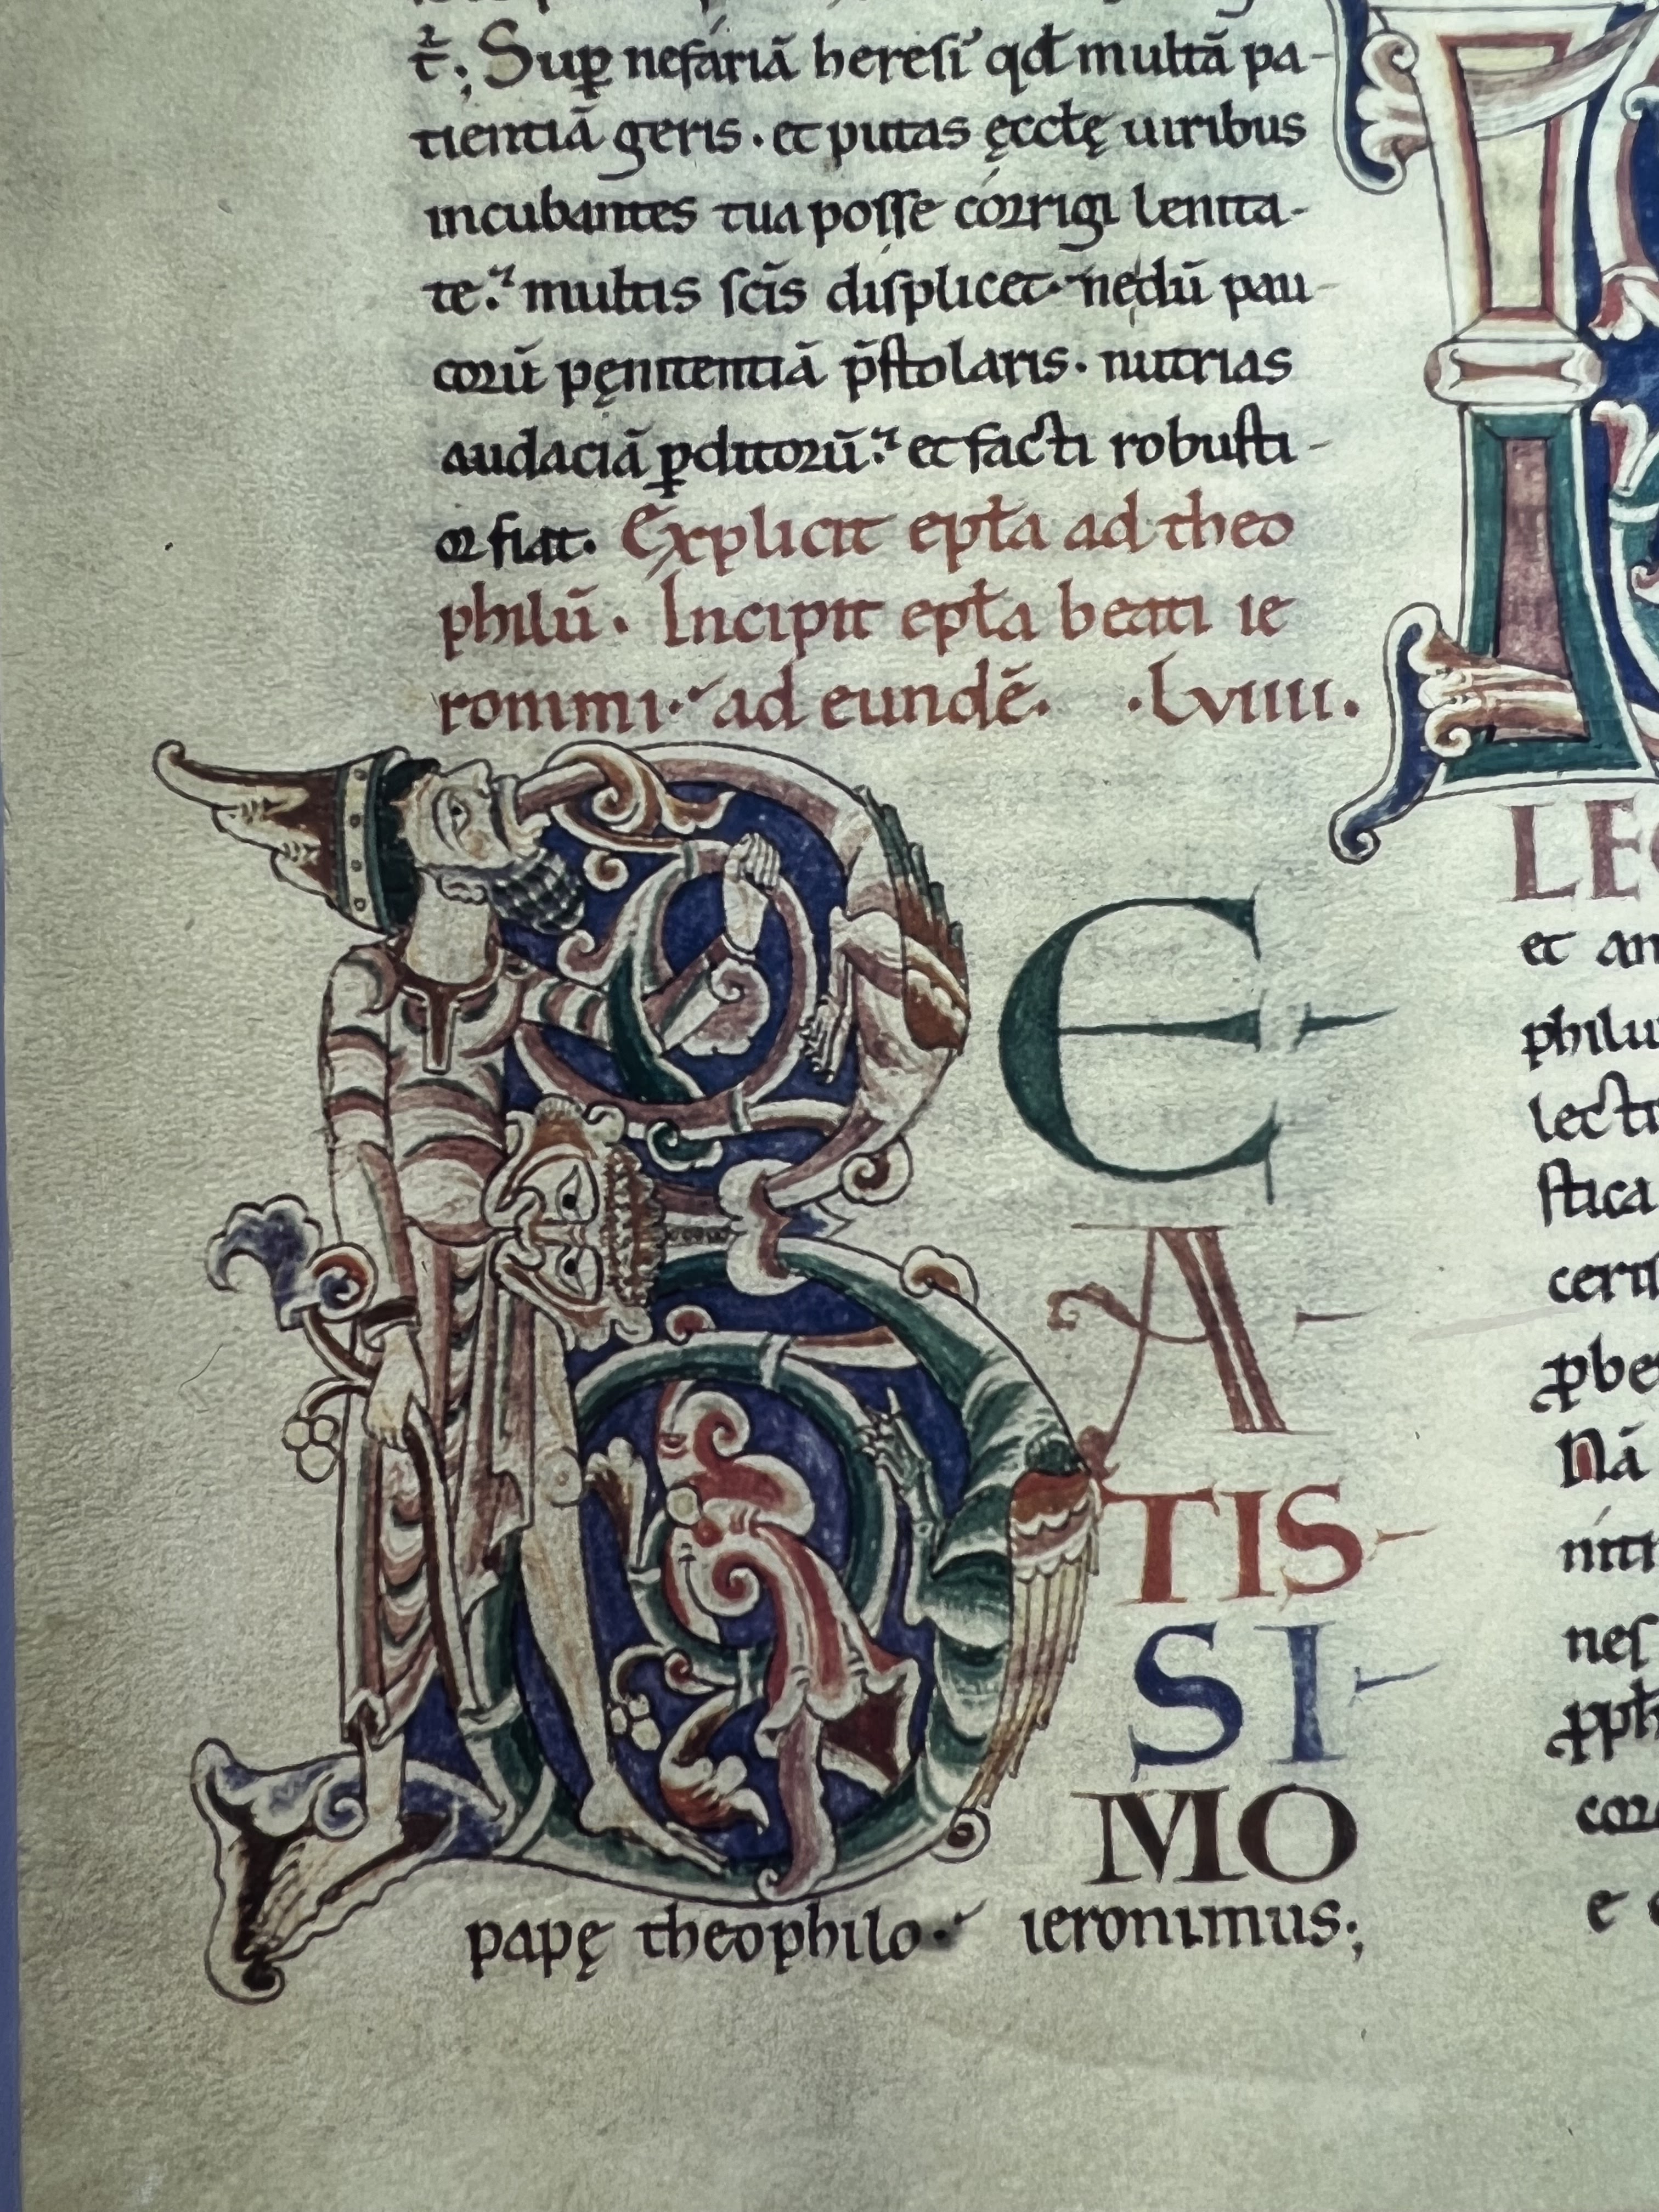 t̄.; Sup̱ nefáriā heresī qđ multā pa-
tientiā geris. et putas ęccłę uiribus
incubantes tua posse córrigi lenita-
te. multis scīs displicet. nedū pau-
corū pęnitentiā p̄stolaris. nutrias
audaciā p̱ditorū. et facti robusti-
or fiat. Explicit epła ad theo
philū. Incipit epła beati ie
ronimi. ad eundē. .LVIIII.
B
E-
A-
TIS-
SI-
MO
papę theophilo. ieronimus.;
LEG
et an
philu
lecti
stica
certi
p̱be
Nā
niti
nes
cor
e